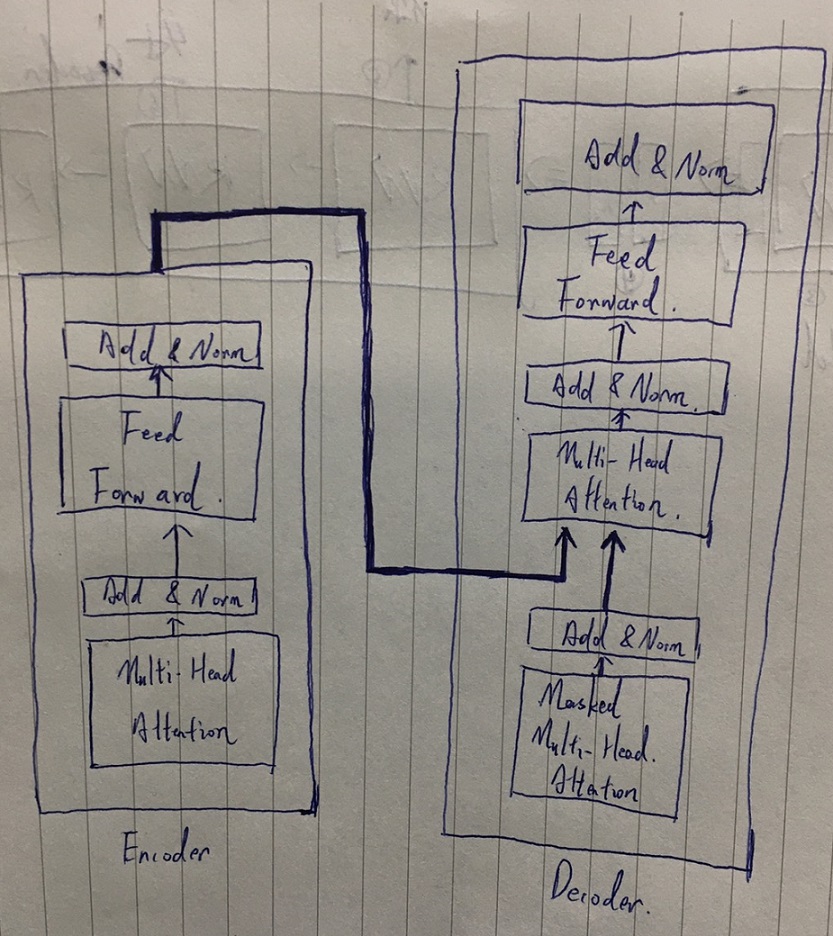 Add & Norm
Feed
Forward.
Add & Norm
Multi-Head
Attention
Encoder
Add & Norm
Feed
Forward.
Add & Norm.
Multi-Head
Attention.
Add & Norm
Masked
Multi-Head.
Attention
Decoder.